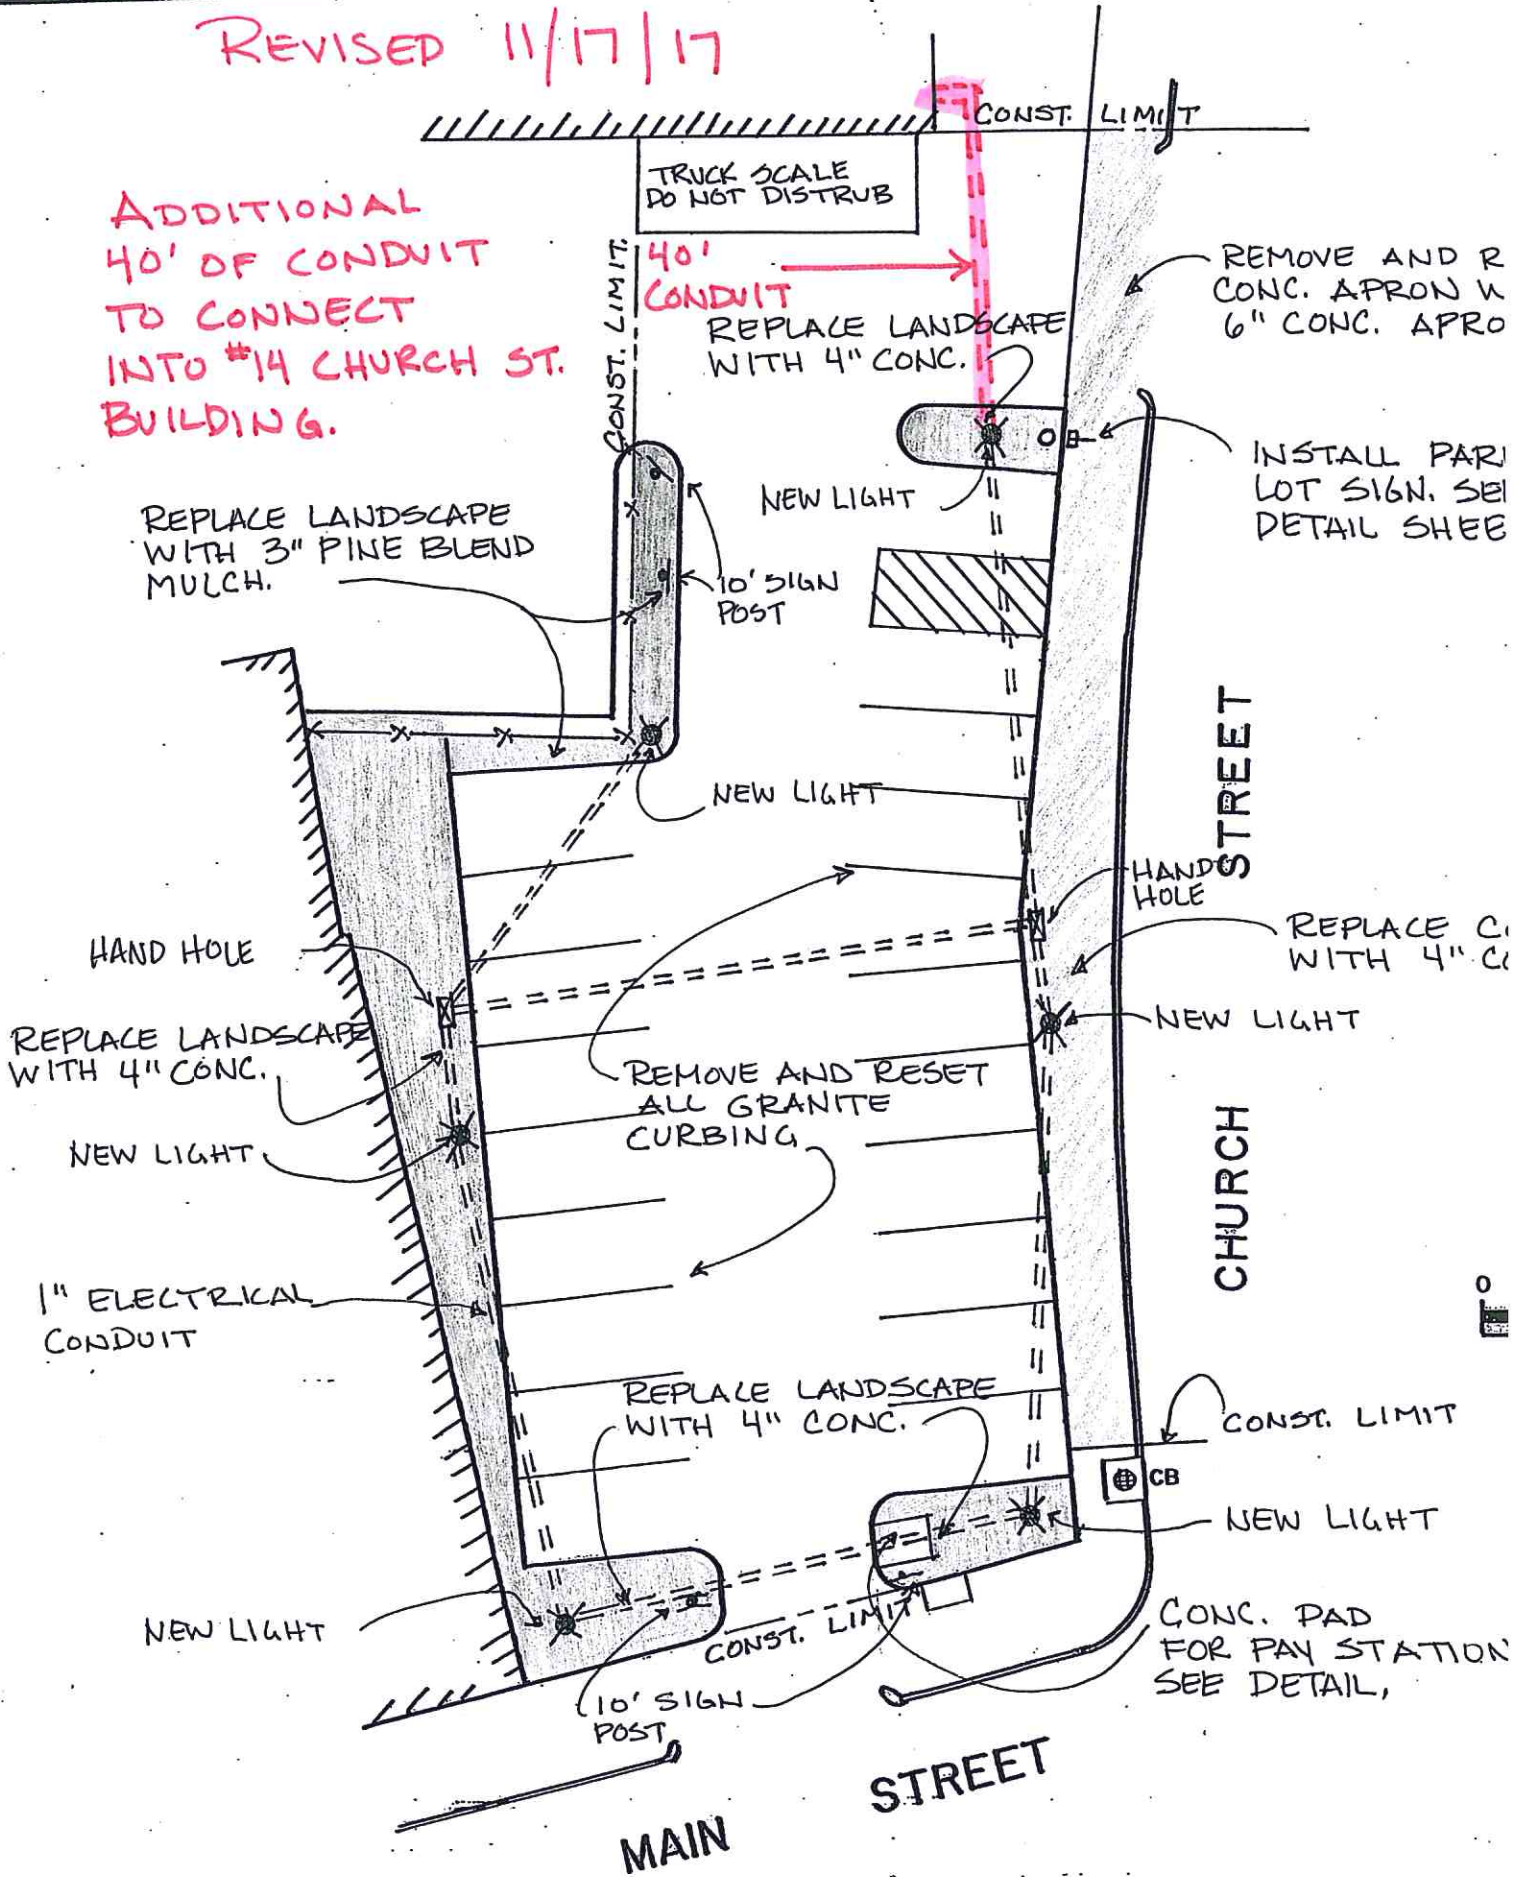 REVISED 11/17/17
CONST. LIMIT
TRUCK SCALE
DO NOT DISTRUB
ADDITIONAL
40' OF CONDUIT
TO CONNECT
INTO #14 CHURCH ST.
BUILDING.
CONST. LIMIT.
40'
CONDUIT
REPLACE LANDSCAPE
WITH 4" CONC.
REMOVE AND R
CONC. APRON
6" CONC. APRO
INSTALL PAR
LOT SIGN. SE
DETAIL SHEE
NEW LIGHT
REPLACE LANDSCAPE
WITH 3" PINE BLEND
MULCH.
10' SIGN
POST
NEW LIGHT
STREET
HAND
HOLE
HAND HOLE
REPLACE C
WITH 4" C
REPLACE LANDSCAPE
WITH 4" CONC.
NEW LIGHT
REMOVE AND RESET
ALL GRANITE
CURBING
NEW LIGHT
CHURCH
1" ELECTRICAL
CONDUIT
0
REPLACE LANDSCAPE
WITH 4" CONC.
CONST. LIMIT
CB
NEW LIGHT
NEW LIGHT
CONST. LIMIT
CONC. PAD
FOR PAY STATION
SEE DETAIL,
10' SIGN
POST
STREET
MAIN